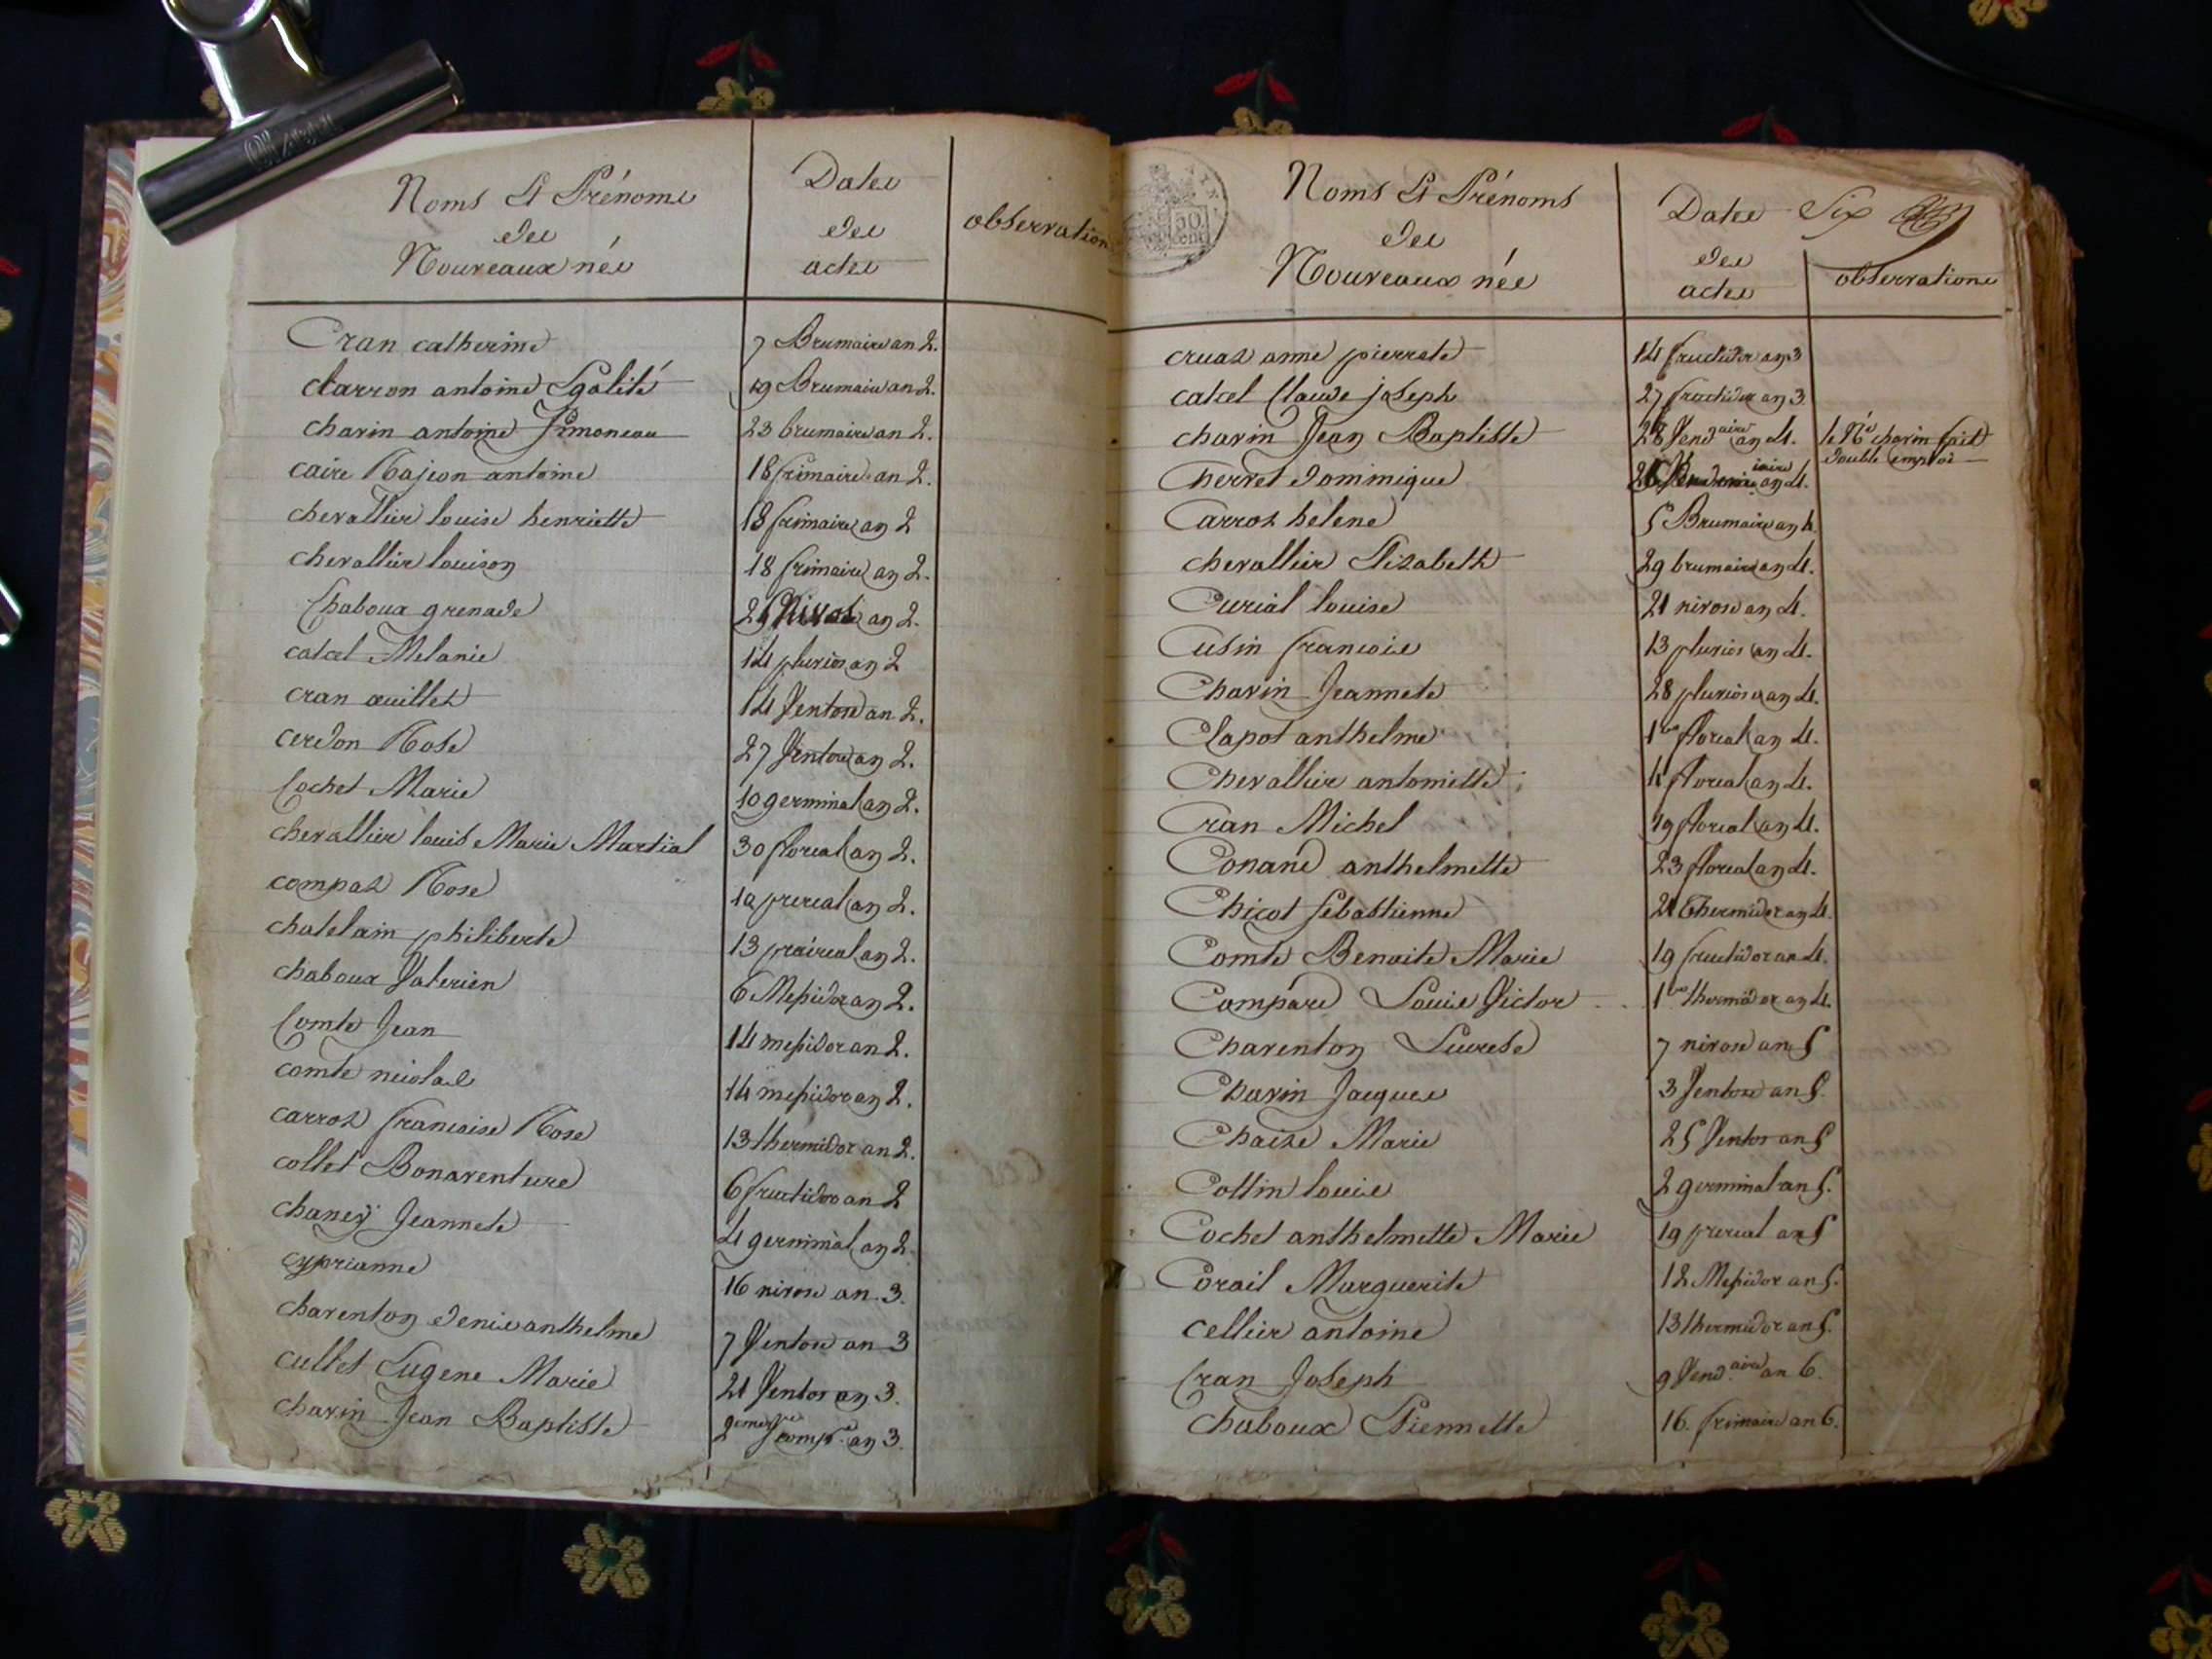 Noms Et Prénoms
des
Nouveaux nés
Dates
des
actes
observation
Cran catherine 7 Brumaire an 2.
Carron antoine Egalité 19 Brumaire an 2.
chavin antoine Simoneau 23 brumaire an 2.
caire Rajeon antoine 18 frimaire an 2.
chevallier louise henriette 18 frimaire an 2
chevallier louison 18 frimaire an 2.
Chaboux grenade nivose an 2.
catcel Melanie 14 pluvios an 2
cran œuillet 14 Ventose an 2.
cerdon Rose 27 Ventose an 2.
Cochet Marie 10 germinal an 2.
chevallier louis Marie Martial 30 floreal an 2.
compas Rose prereal an 2.
chatelain philiberte 13 praireal an 2.
chaboux Valerien 6 Messidor an 2.
Comte Jean 14 messidor an 2.
comte nicolas 14 messidor an 2.
carroz francoise Rose 13 thermidor an 2.
collet Bonaventure 6 fructidor an 2
chaney Jeannete 4 germinal an 2
cyprianne 16 nivose an 3.
charenton denis anthelme 7 Ventose an 3
cullet Eugene Marie 21 Ventos an 3.
chavin Jean Baptiste 2eme compre an 3.
50 cent
Noms Et Prénoms
des
Nouveaux nés
Dates
des
actes
Six
observations
cruaz anne pierrete 14 fructidor an 3
catcel Claude joseph 27 fructidor an 3
chavin Jean Baptiste 28 Vendaire an 4. le Né chavin fait
double emploi
Cherret dominique an 4.
Carroz helene 5 Brumaire an 4
chevallier Elizabeth 29 brumaire an 4.
Curial louise 21 nivose an 4.
Cusin francois 13 pluvios an 4.
Chavin Jeannete 28 pluviose an 4.
Clapot anthelme 1er floreal an 4.
Chevallier antoinette 4 floreal an 4.
Cran Michel 19 floreal an 4.
Conand anthelmette 23 floreal an 4.
Chicot Sebastienne 21 Thermidor an 4.
Comte Benoite Marie 19 fructidor an 4.
Compare Louis Victor 1er thermidor an 4.
Charenton Lucrese 7 nivose an 5
Chavin Jacques 3 Ventose an 5.
Chaize Marie 25 Ventos an 5
Collin louis 2 germinal an 5.
Cochet anthelmette Marie 19 prereal an 5
Corail Marguerite 12 Messidor an 5.
cellier antoine 13 thermidor an 5.
Cran Joseph 9 Vend.aire an 6.
Chaboux Etiennette 16. frimaire an 6.